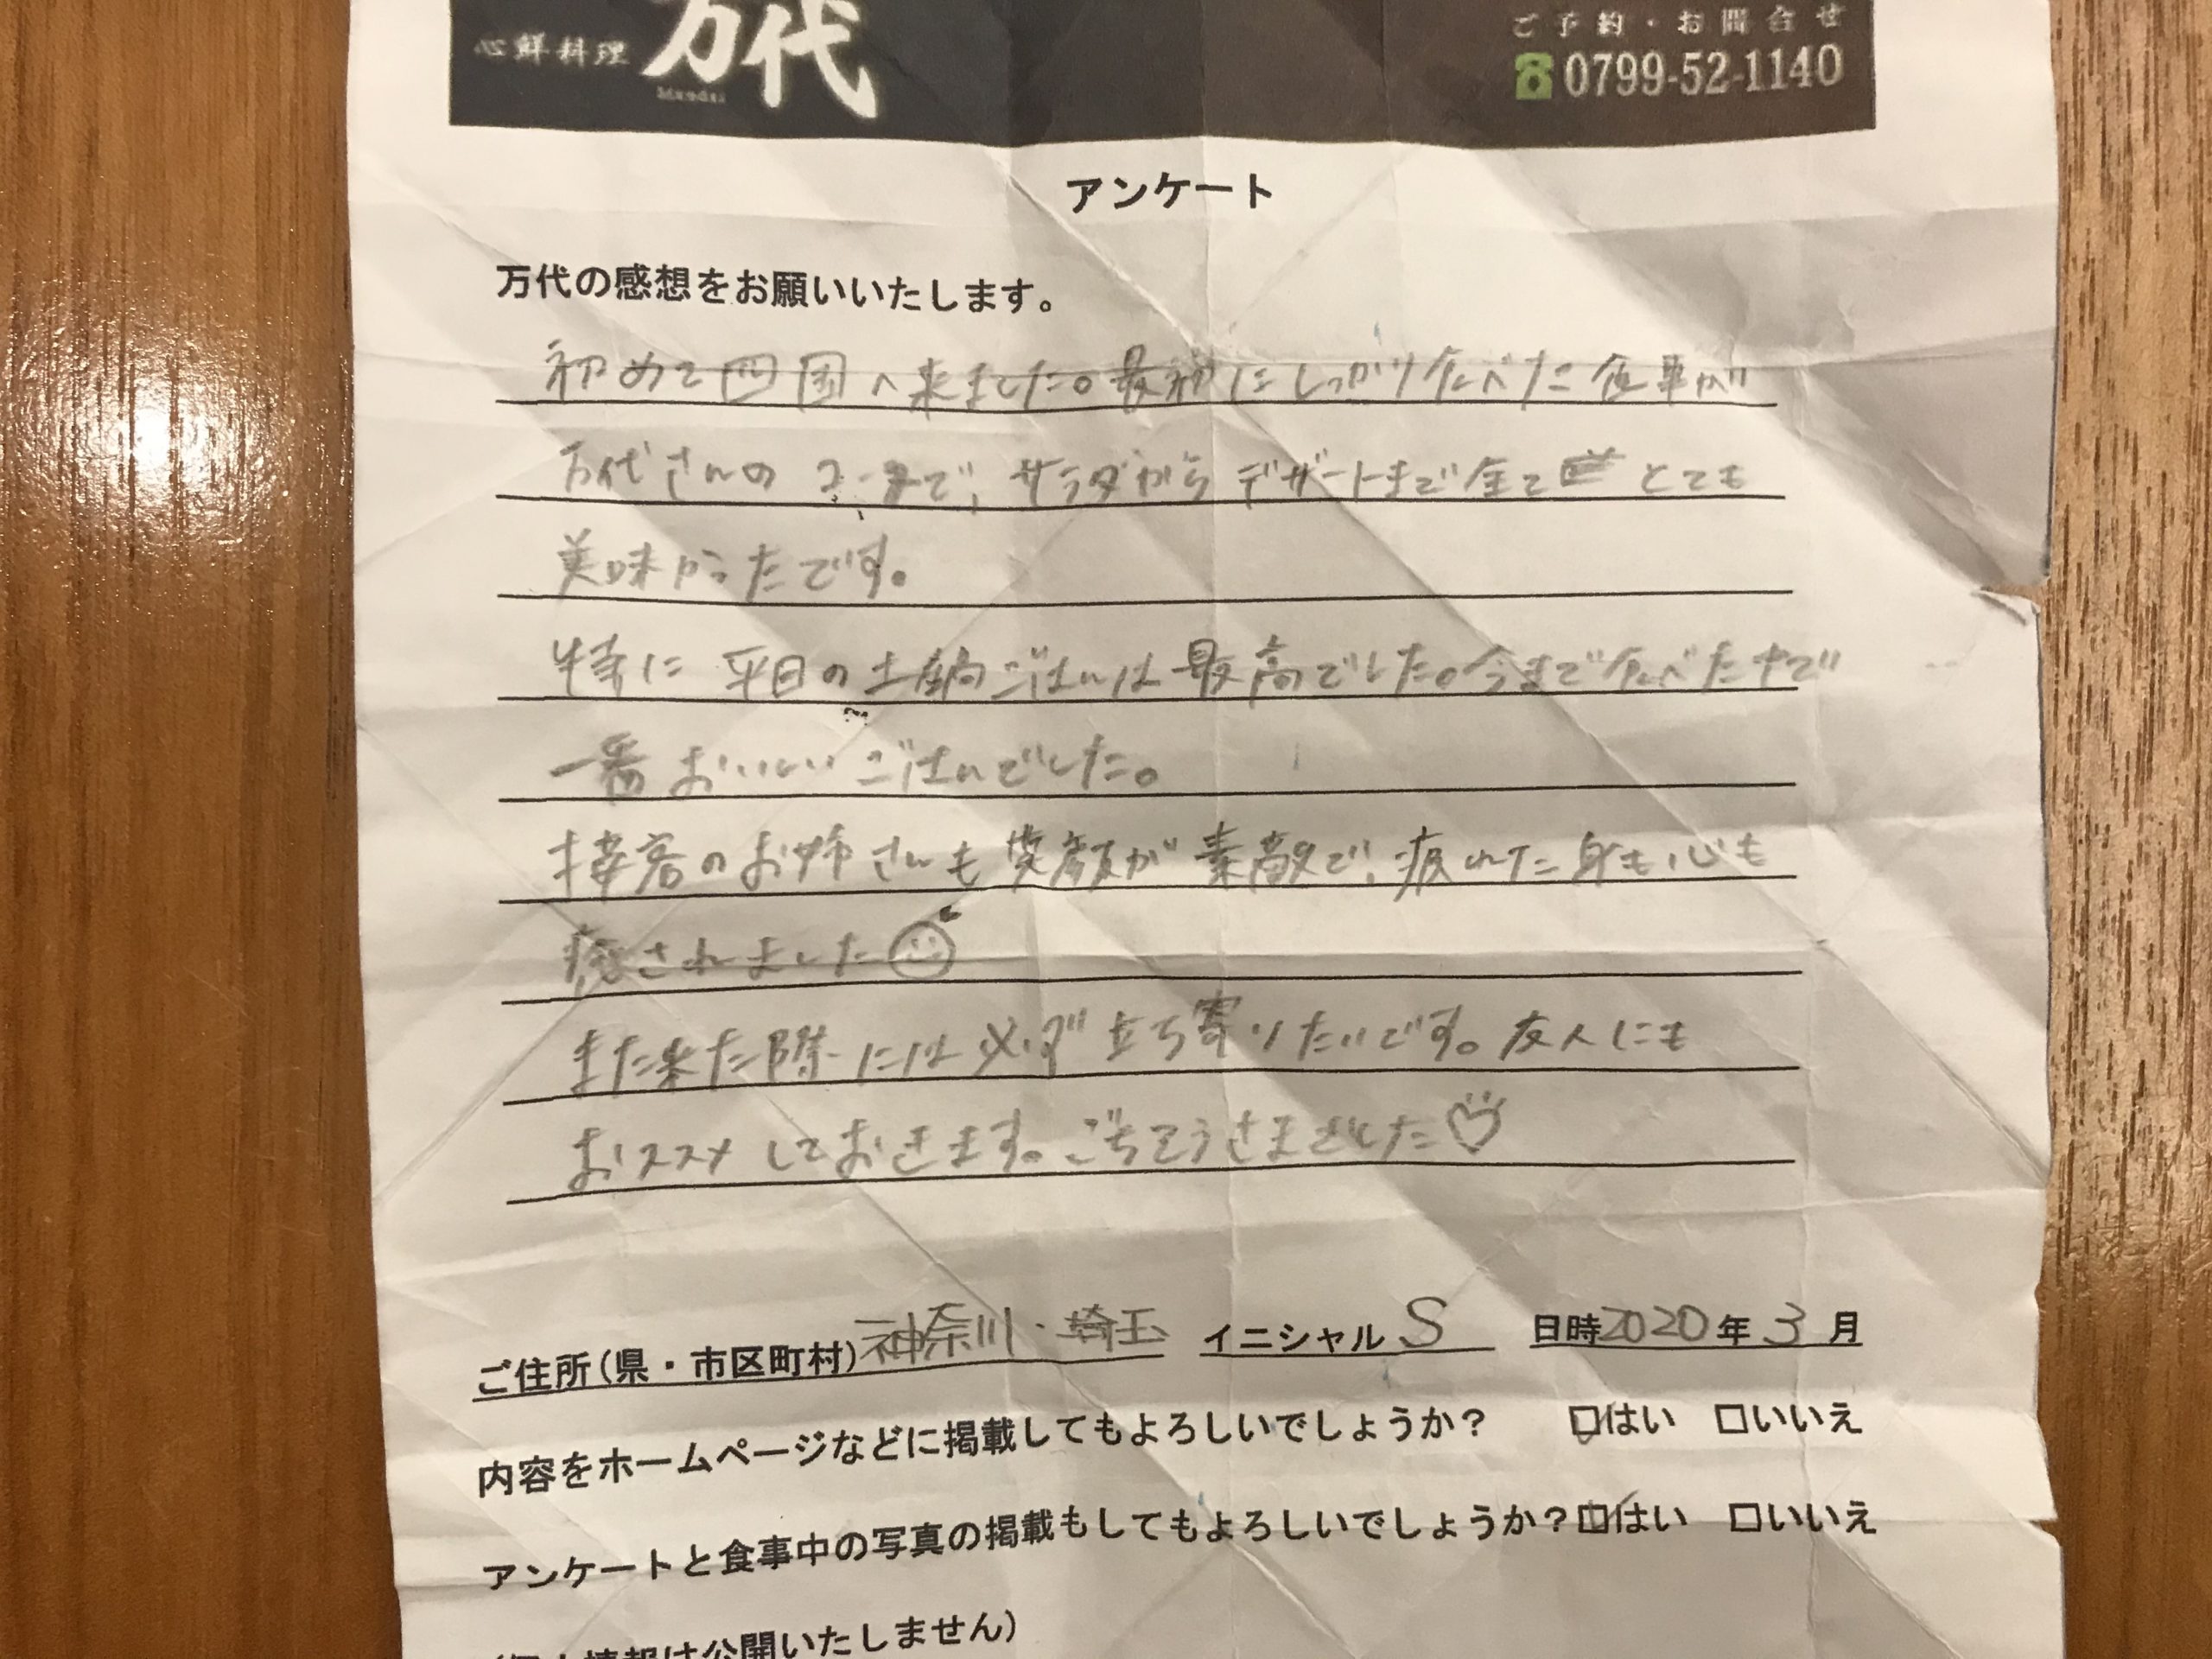 心鮮料理 万代
Mandai
ご予約・お問合せ
0799-52-1140
アンケート
万代の感想をお願いいたします。
初めて四国へ来ました。最初にしっかり食べた食事が
万代さんの で、サラダからデザートまで全てとても
美味かったです。
特に平日の土鍋ごはんは最高でした。今まで食べた中で
一番おいしいごはんでした。
接客のお姉さんも笑顔が素敵で、疲れた身も心も
癒されました
また来た際には必ず立ち寄りたいです。友人にも
おススメしておきます。ごちそうさまでした
ご住所(県・市区町村)神奈川・埼玉 イニシャル S 日時2020年3月
内容をホームページなどに掲載してもよろしいでしょうか? □はい □いいえ
アンケートと食事中の写真の掲載もしてもよろしいでしょうか?□はい □いいえ
(個人情報は公開いたしません)